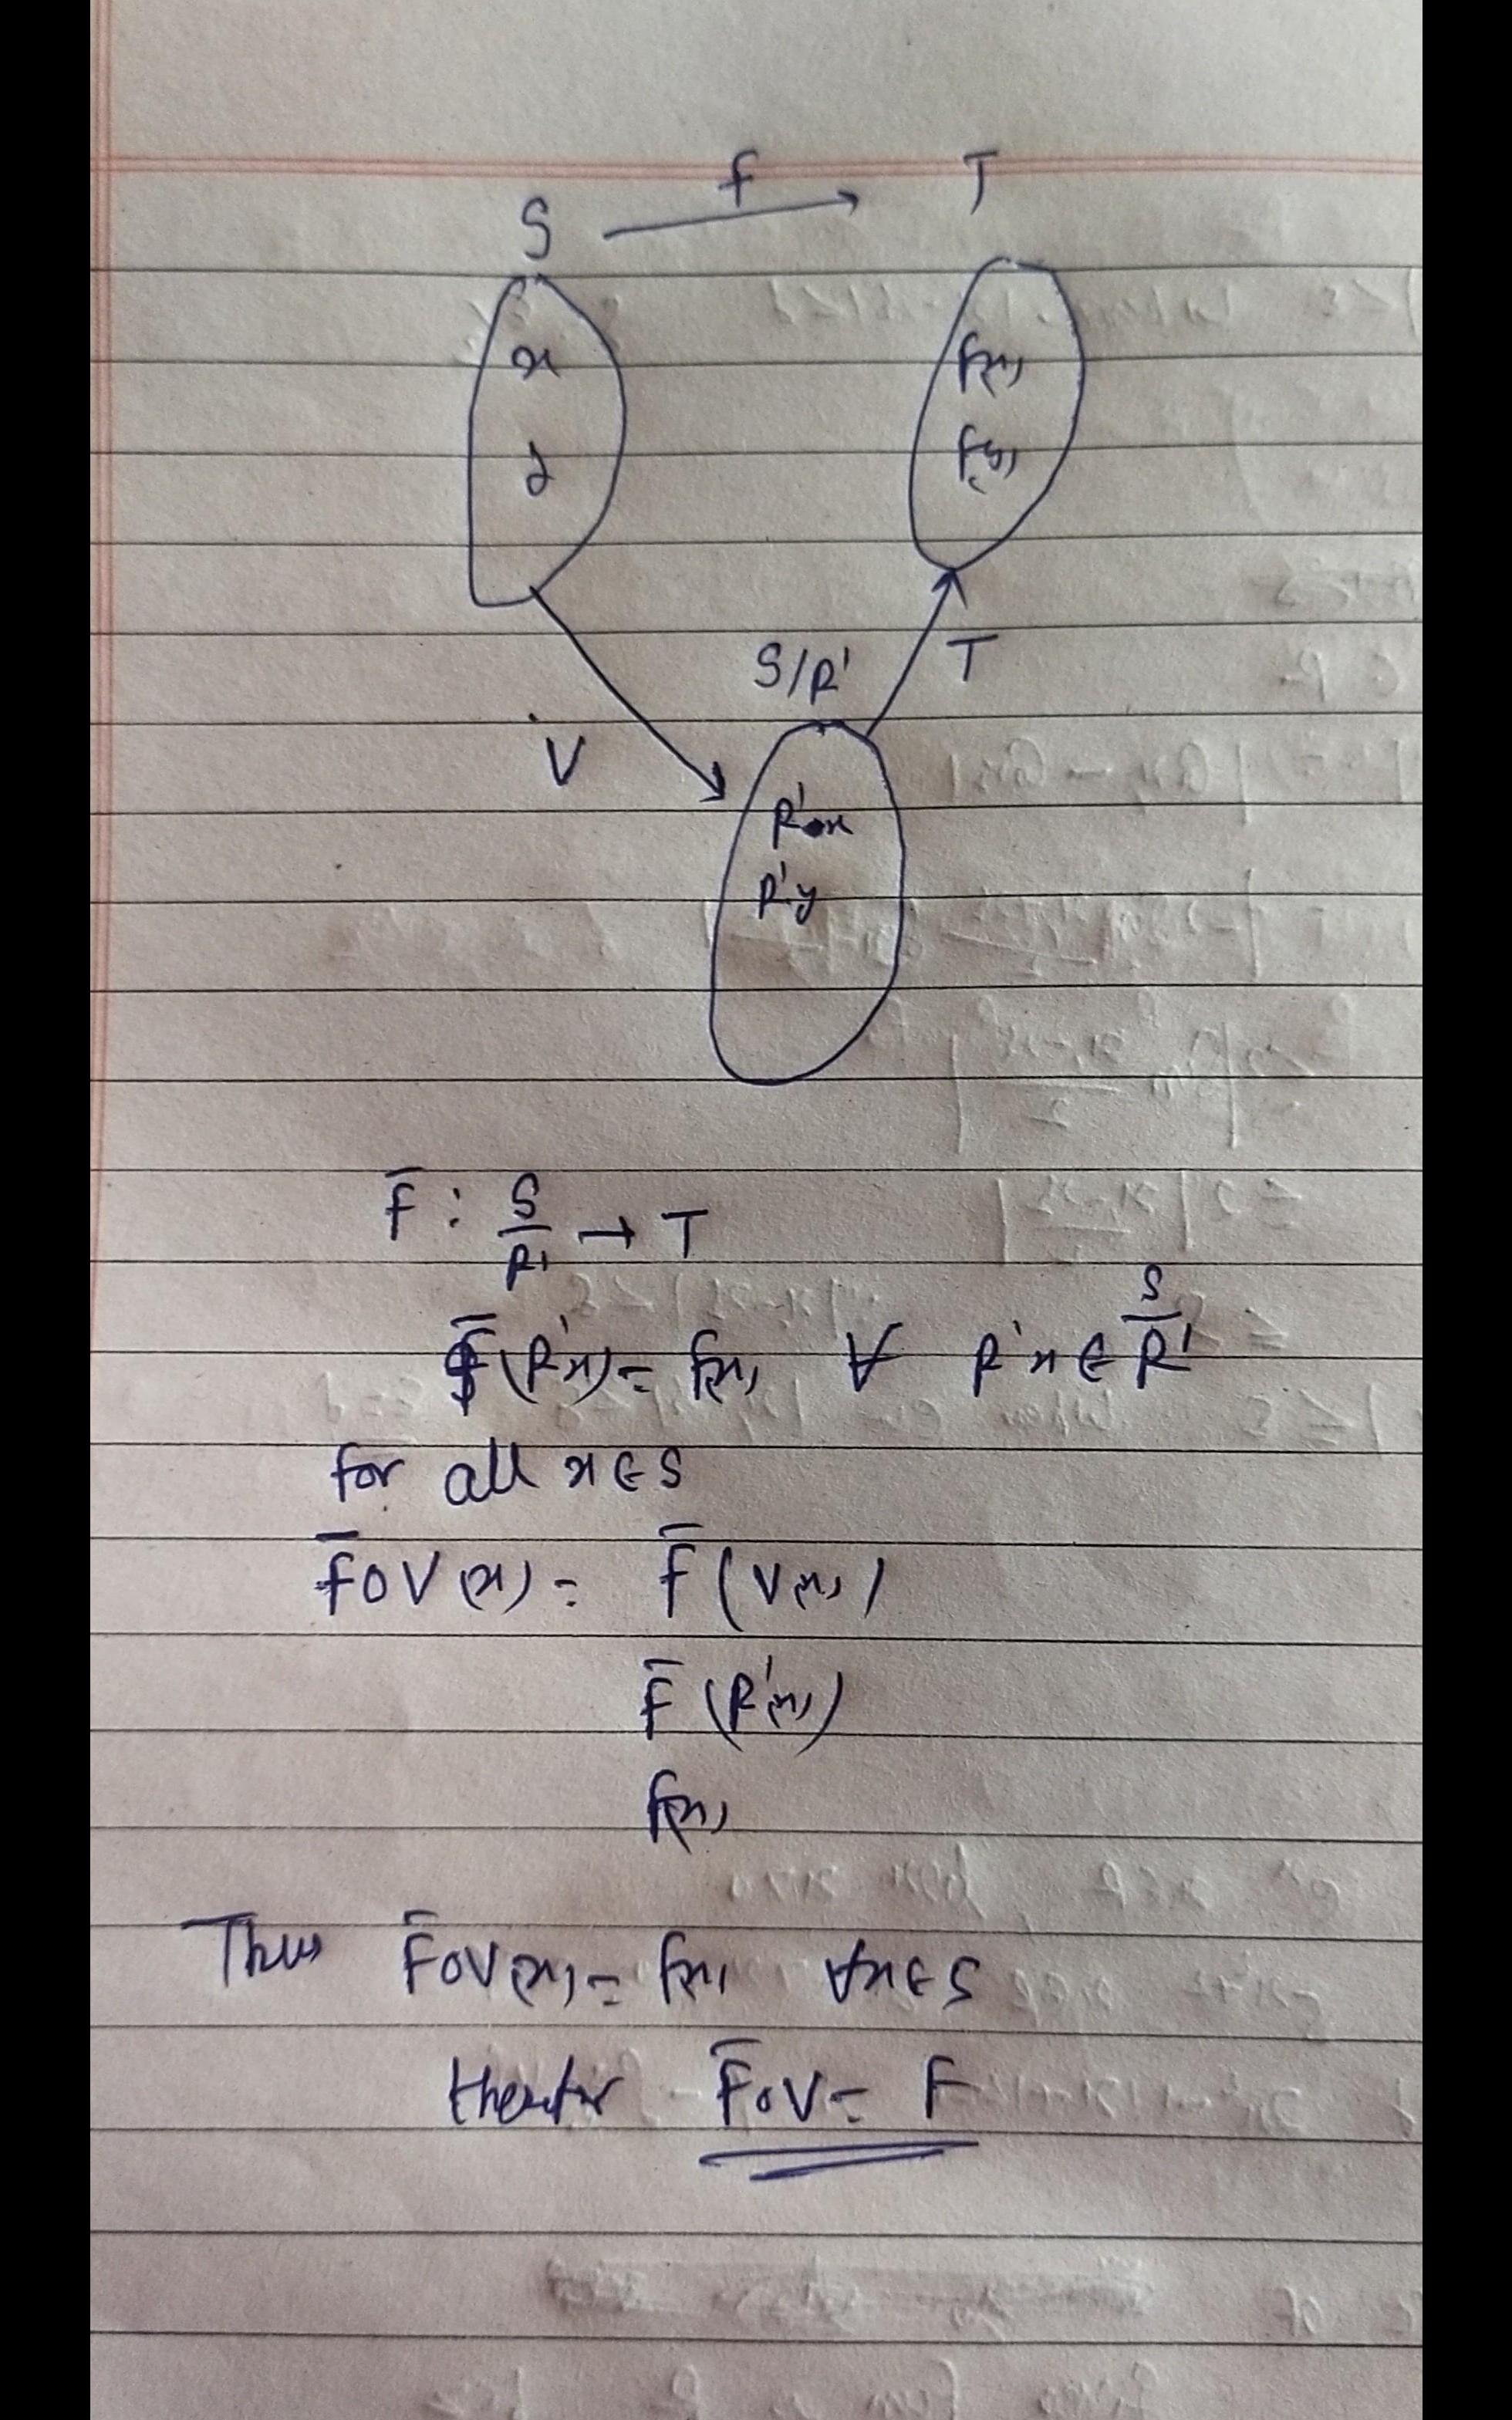 S f T
x f(x)
y f(y)
S/R' T
V
R'x
R'y
F̄ : S/R' → T
F̄(R'x) = f(x) ∀ R'x ∈ S/R'
for all x ∈ S
F̄oV(x) = F̄(V(x))
F̄(R'(x))
f(x)
Thus F̄oV(x) = f(x) ∀x ∈ S
F̄oV = F